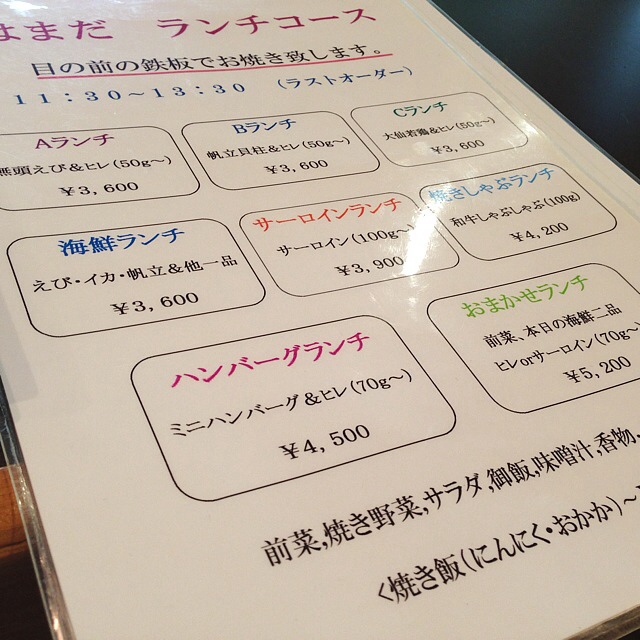 はまだ ランチコース
目の前の鉄板でお焼き致します。
11:30~13:30 (ラストオーダー)
Aランチ
無頭えび&ヒレ(50g~)
¥3,600
Bランチ
帆立貝柱&ヒレ(50g~)
¥3,600
Cランチ
大仙若鶏&ヒレ(50g~)
¥3,600
海鮮ランチ
えび・イカ・帆立&他一品
¥3,600
サーロインランチ
サーロイン(100g~)
¥3,900
焼きしゃぶランチ
和牛しゃぶしゃぶ(100g)
¥4,200
ハンバーグランチ
ミニハンバーグ&ヒレ(70g~)
¥4,500
おまかせランチ
前菜、本日の海鮮二品
ヒレorサーロイン(70g~
¥5,200
前菜,焼き野菜,サラダ,御飯,味噌汁,香物,
<焼き飯(にんにく・おかか)~